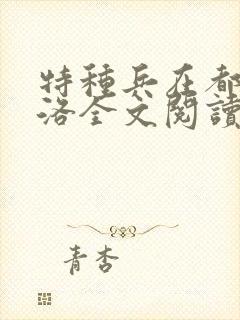 特種兵在都
洛全文閱讀
青杏